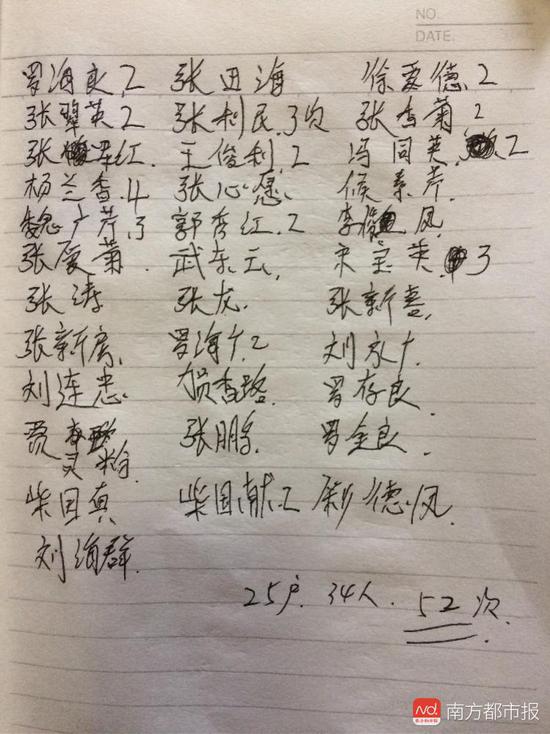 NO.
DATE.
罗海良 2 张进海 徐爱德 2
张翠英 2 张利民 3次 张香菊 2
张 红 王俊利 2 冯同英 2
杨兰香 4 张心愿 候素芹
魏广芹 3 郭秀红 2 李俊凤
张厦菊 武东云 宋宝英 3
张涛 张龙 张新喜
张新房 罗海 2 刘永
刘连忠 香 罗存良
贾 张鹏 罗全良
灵
柴国真 柴国献 2 德凤
刘海群
25户. 34人. 52次.
南方都市报